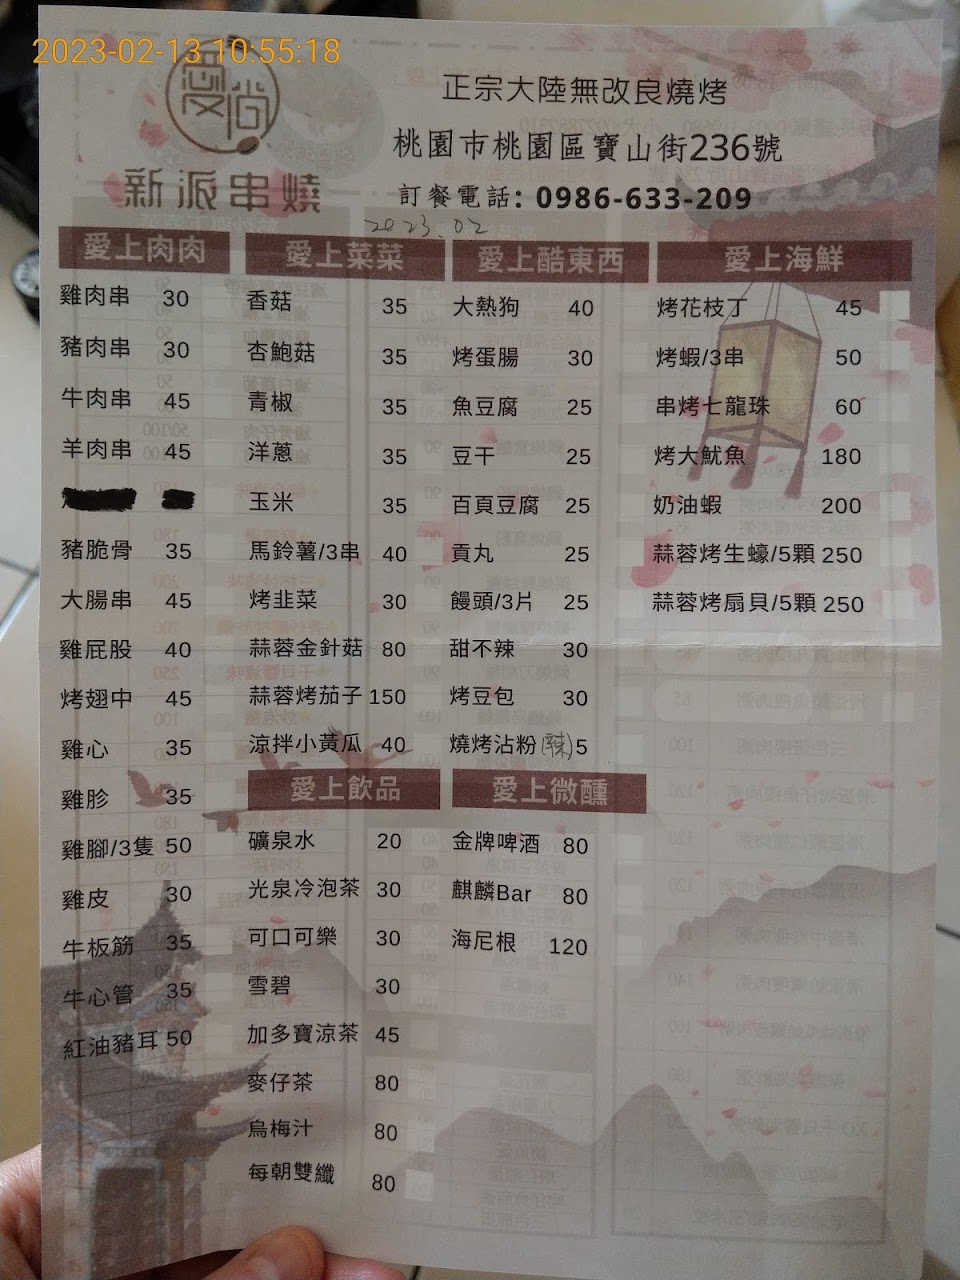 2023-02-13 10:55:18
愛尚
新派串燒
正宗大陸無改良燒烤
桃園市桃園區寶山街236號
訂餐電話: 0986-633-209
2023.02
愛上肉肉
雞肉串 30
豬肉串 30
牛肉串 45
羊肉串 45
豬脆骨 35
大腸串 45
雞屁股 40
烤翅中 45
雞心 35
雞胗 35
雞腳/3隻 50
雞皮 30
牛板筋 35
牛心管 35
紅油豬耳 50
愛上菜菜
香菇 35
杏鮑菇 35
青椒 35
洋蔥 35
玉米 35
馬鈴薯/3串 40
烤韭菜 30
蒜蓉金針菇 80
蒜蓉烤茄子 150
涼拌小黃瓜 40
愛上飲品
礦泉水 20
光泉冷泡茶 30
可口可樂 30
雪碧 30
加多寶涼茶 45
麥仔茶 80
烏梅汁 80
每朝雙纖 80
愛上酷東西
大熱狗 40
烤蛋腸 30
魚豆腐 25
豆干 25
百頁豆腐 25
貢丸 25
饅頭/3片 25
甜不辣 30
烤豆包 30
燒烤沾粉(辣) 5
愛上微醺
金牌啤酒 80
麒麟Bar 80
海尼根 120
愛上海鮮
烤花枝丁 45
烤蝦/3串 50
串烤七龍珠 60
烤大魷魚 180
奶油蝦 200
蒜蓉烤生蠔/5顆 250
蒜蓉烤扇貝/5顆 250